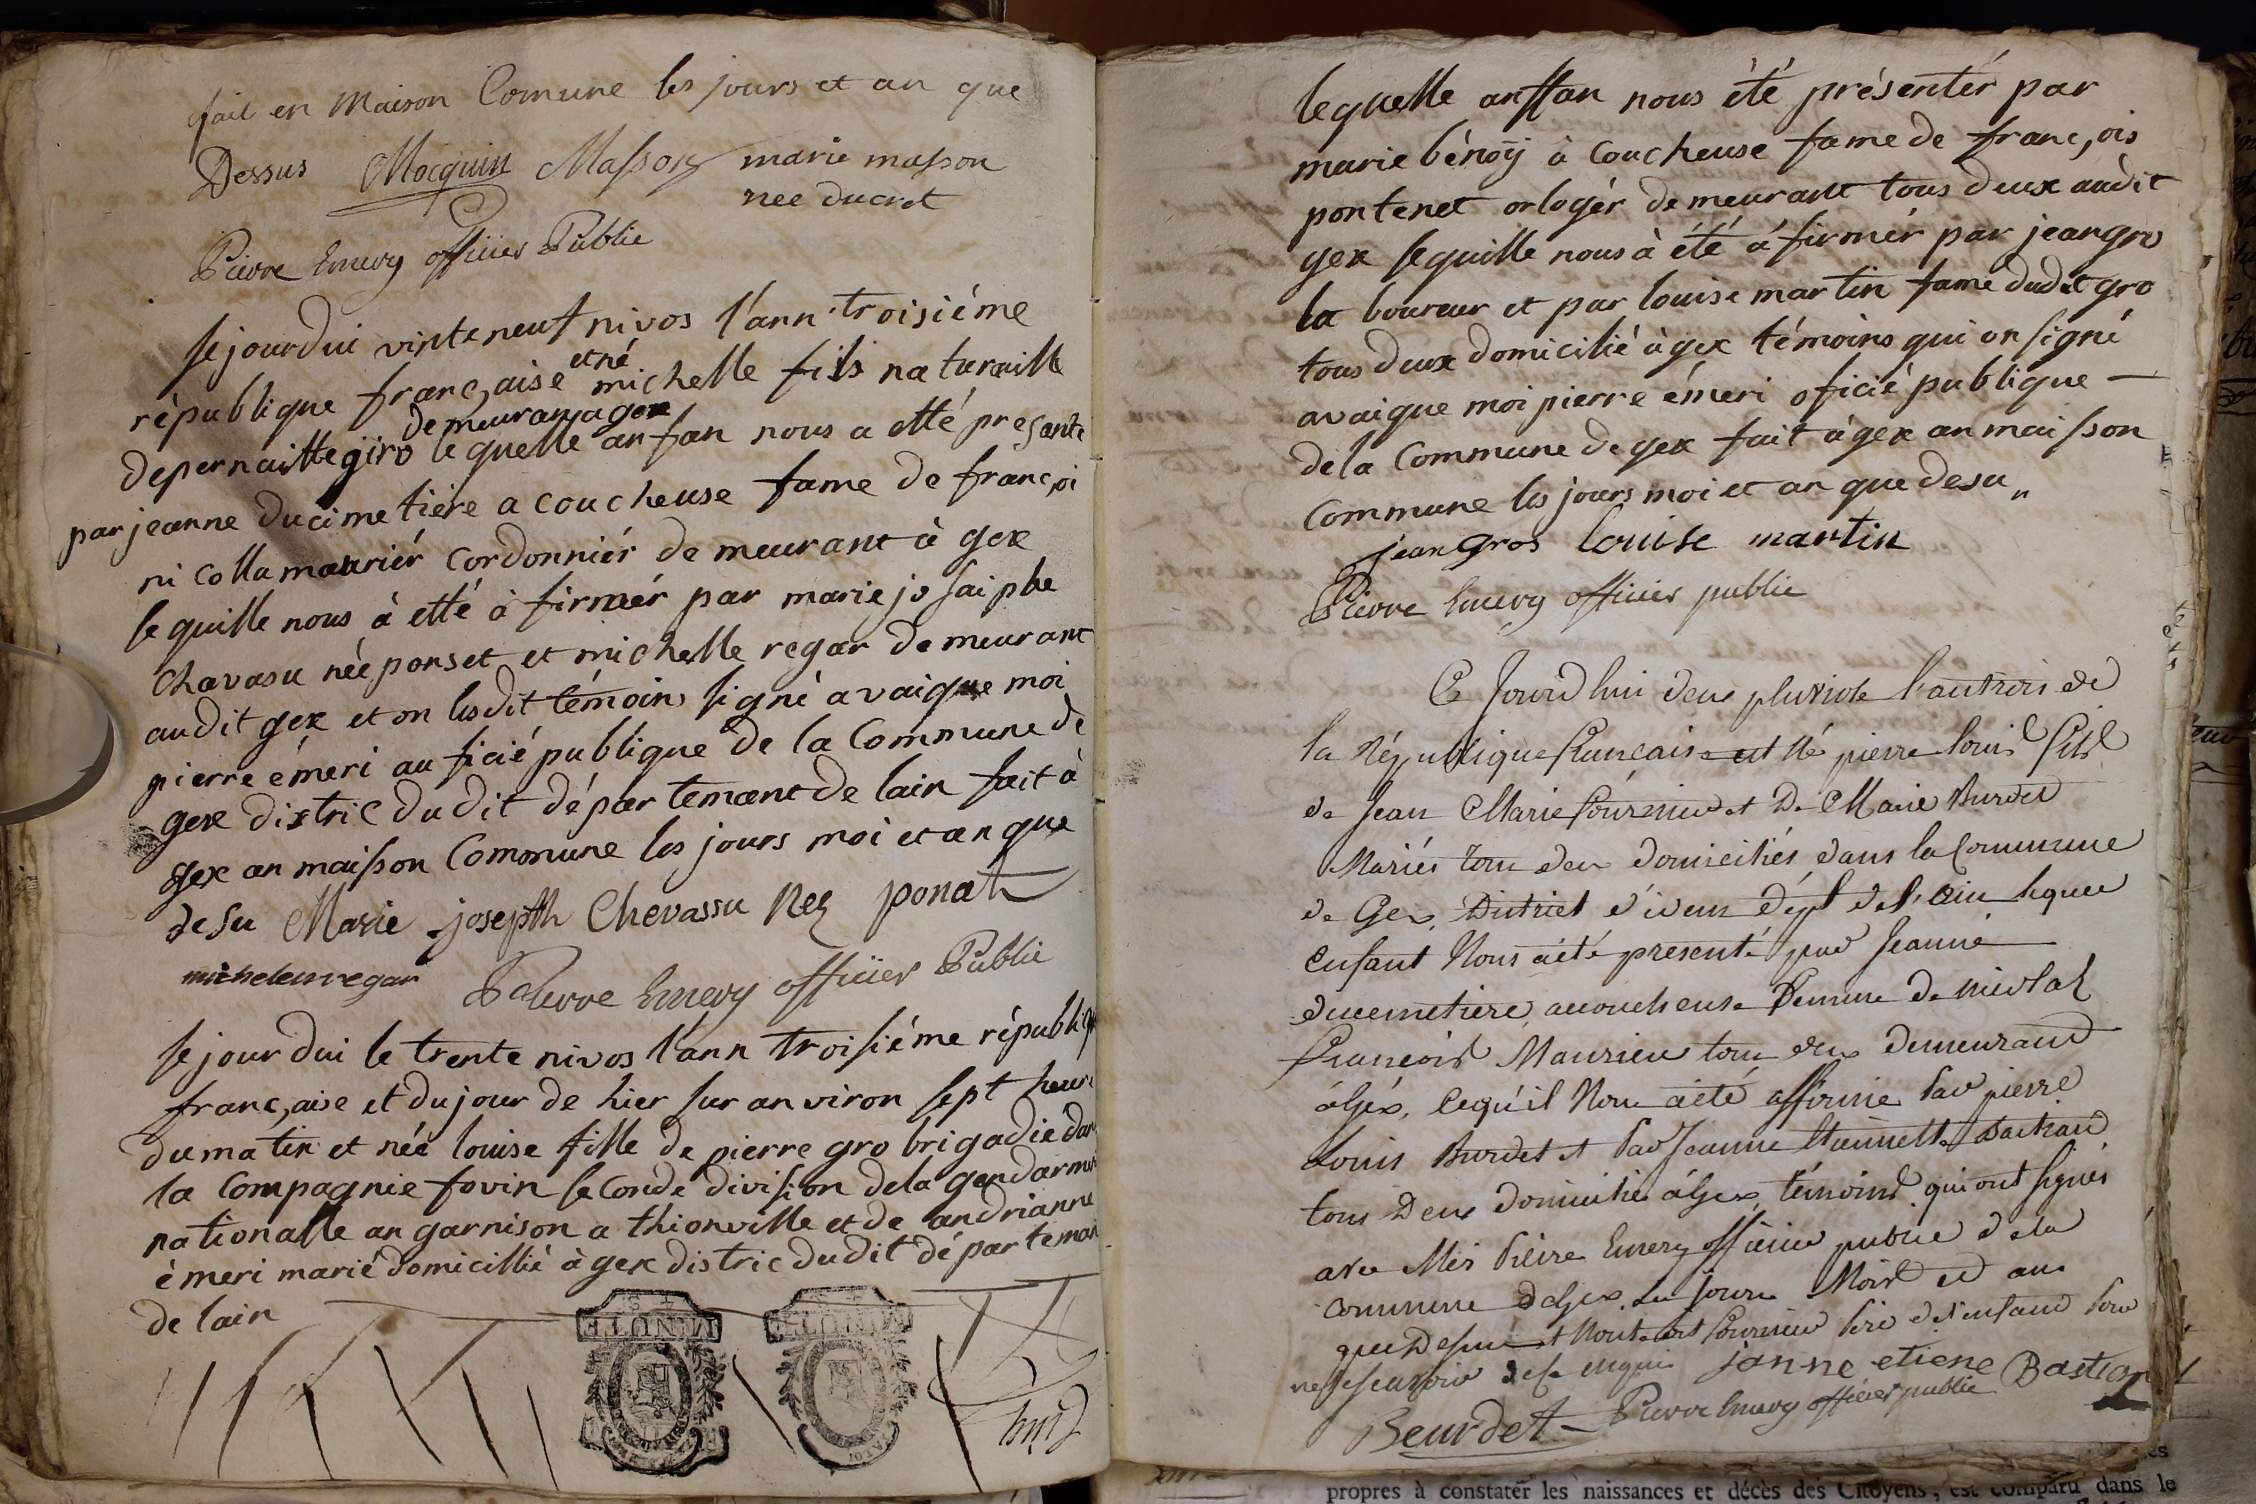 fait en Maison Comune les jours et an que
Dessus Mocquin Masson marie masson
nee ducret
Pierre Emery officier Public
se jourdui vinteneuf nivos l'ann troisiéme
république franc,aise et né michelle fils naturaille
depernaitte giro demeuran a gex le quelle anfan nous a etté presanté
par jeanne ducimetière a coucheuse fame de franc,oi
ni colla maurier cordonniér de meurant à gex
se quille nous à etté à firmér par marie jo saiphe
chavasu née ponset et michelle regar demeurant
audit gex et on lesdit témoins signé avaique moi
pierre émeri au ficié publique de la Commune de
gex distric dudit département de lain fait à
gex an maisson Commune les jours moi et an que
desu Marie josepth Chevassu Neé ponat
micheleu regar Pierre Emery officier Public
se jour dui le trente nivos l'ann troisiéme républiq
franc,aise et du jour de hier sur anviron sept heure
du matin et née louise fille de pierre gro brigadié dan
la Compagnie fovin seconde division dela gendarme
nationalle an garnison a thionville et de andrianne
émeri marié domicillié à gex distric dudit départeman
de lain
MINUTE
MINUTE
lequelle anffan nous été présentér par
marie bénoÿ à coucheuse fame de franc,ois
pontenet orlogér demeurant tous deux audit
gex se quille nous à été á firmér par jean gro
la boureur et par louise martin fame dudit gro
tous deux domicilié à gex témoins qui on signé
avaique moi pierre émeri oficié publique —
de la Commune de gex fait à gex an maisson
Commune les jours moi et an que desu „
jean gros louise martin
Pierre Emery officier public
Ce Jourdhui deux pluviose l'an trois de
la République francaise est Né pierre louis fils
de Jean Marie fournier et De Marie Burdet
Mariés tous deux domiciliés dans la Commune
de Gex, District d'idem dépt de l'ain lequel
enfant Nous a été presenté par Jeanne
ducemetiere, accoucheuse femme de nicolas
francois Maurier tous deux demeurant
á Gex, Lequ'il Nous a été affirmé par pierre
Louis Burdet et par Jeanne Etiennette Bastian
tous Deux domicilié á Gex, témoins qui ont signés
avec Moi Pierre Emery officier public de la
commune de Gex les jours Mois et an
que Dessus et Fournier père de l'enfant pour
ne janne etiene Bastian
Beurdet Pierre Emery officier public
propres à constater les naissances et décès des Citoyens, est comparu dans le